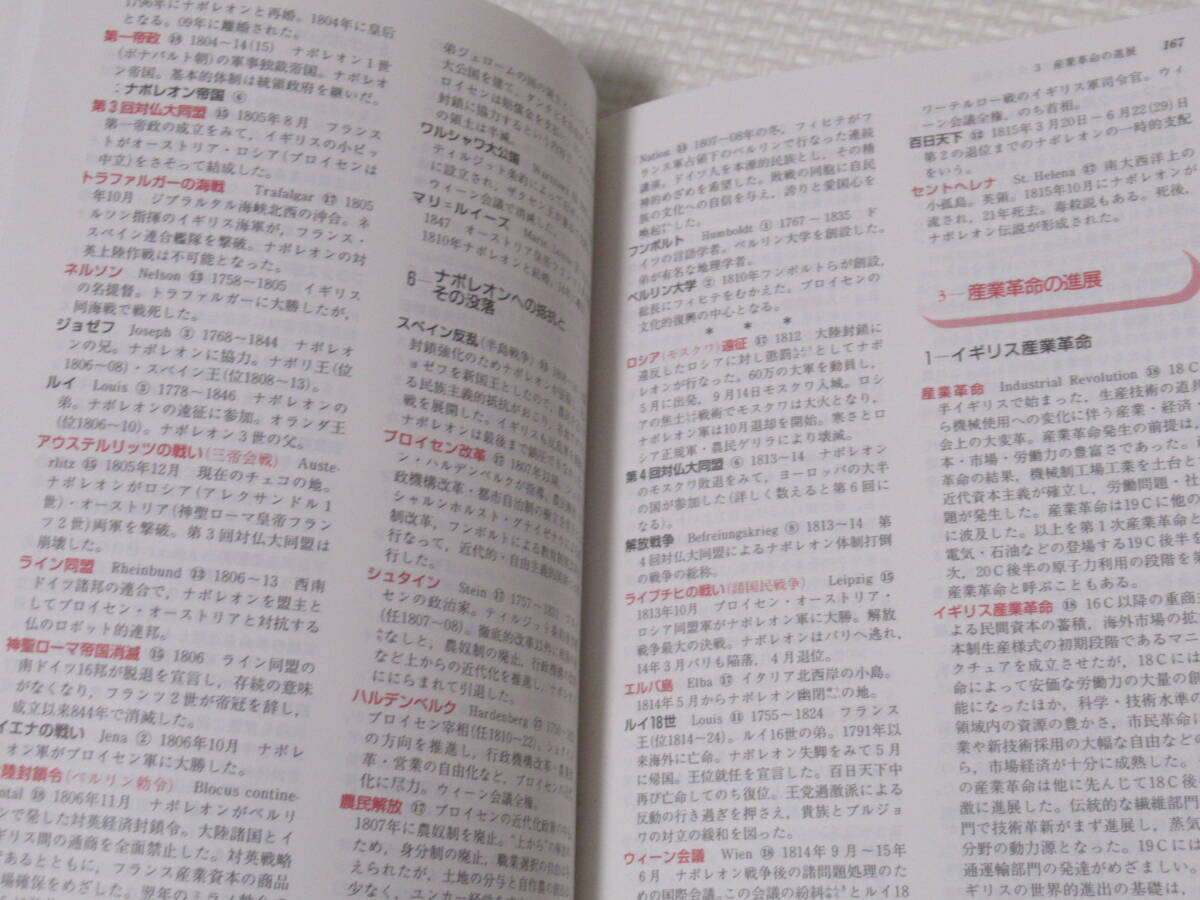 1796年にナポレオンと再婚。1804年に皇后
となる。09年に離婚された。
第一帝政 ⑱ 1804〜14(15) ナポレオン1世
(ボナパルト朝)の軍事独裁帝国。ナポレオ
ン帝国。基本的体制は統領政府を継いだ。
:ナポレオン帝国 ⑥
第3回対仏大同盟 ⑮ 1805年8月 フランス
第一帝政の成立をみて、イギリスの小ピッ
トがオーストリア・ロシア(プロイセンは
中立)をさそって結成した。
トラファルガーの海戦 Trafalgar ⑰ 1805
年10月 ジブラルタル海峡北西の沖合。ネ
ルソン指揮のイギリス海軍が、フランス・
スペイン連合艦隊を撃破。ナポレオンの対
英上陸作戦は不可能となった。
ネルソン Nelson ⑬ 1758〜1805 イギリス
の名提督。トラファルガーに大勝したが、
同海戦で戦死した。
ジョゼフ Joseph ③ 1768〜1844 ナポレオ
ンの兄。ナポレオンに協力。ナポリ王(位
1806〜08)・スペイン王(位1808〜13)。
ルイ Louis ③ 1778〜1846 ナポレオンの
弟。ナポレオンの遠征に参加。オランダ王
(位1806〜10)。ナポレオン3世の父。
アウステルリッツの戦い(三帝会戦) Auste-
rlitz ⑮ 1805年12月 現在のチェコの地。
ナポレオンがロシア(アレクサンドル1
世)・オーストリア(神聖ローマ皇帝フラン
ツ2世)両軍を撃破。第3回対仏大同盟は
崩壊した。
ライン同盟 Rheinbund ⑬ 1806〜13 西南
ドイツ諸邦の連合で、ナポレオンを盟主と
してプロイセン・オーストリアと対抗する
仏のロボット的連邦。
神聖ローマ帝国消滅 ⑮ 1806 ライン同盟の
南ドイツ16邦が脱退を宣言し、存続の意味
がなくなり、フランツ2世が帝冠を辞し、
成立以来844年で消滅した。
イエナの戦い Jena ② 1806年10月 ナポレ
オン軍がプロイセン軍に大勝した。
陸封鎖令(ベルリン勅令) Blocus contine-
ntal ⑱ 1806年11月 ナポレオンがベルリ
ンで発した対英経済封鎖令。大陸諸国とイ
ギリス間の通商を全面禁止した。対英戦略
であるとともに、フランス産業資本の商品
場確保をめざした。翌年のミラノ勅令
大公国を建て、
の領土は半減。
ワルシャワ大公国
ティルジット条約によって
に設立され、ザクセン王が
ウィーン会議で消滅した。
マリ=ルイーズ Marie
1847 オーストリア皇帝
1810年ナポレオンと結婚。
6—ナポレオンへの抵抗と
その没落
スペイン反乱(半島戦争)
封鎖強化のためナポレオンが
ョゼフを新国王としたので、
る民族主義的抵抗がおこり、
戦を展開した。イギリスも
ナポレオンは最後まで鎮圧できな
プロイセン改革 ⑰ 1807年以降、
ン・ハルデンベルクが指導。
政機構改革・都市自治制の
シャルンホルスト・グナイゼナウ
制改革、フンボルトによる教育
行なって、近代的・自由主義的
行した。
シュタイン Stein ⑰ 1757〜1831 プロイ
センの政治家。ティルジット条約
(任1807〜08)。徹底的改革以外に
なしと、農奴制の廃止、行政機構
など上からの近代化を推進し、ナポレ
ににらまれて引退した。
ハルデンベルク Hardenberg ⑰ 1750〜
プロイセン宰相(任1810〜22)。シュタイ
の方向を推進し、行政機構改革・農業
革・営業の自由化など、プロイセンの
化に尽力。ウィーン会議全権。
農民解放 ⑰ プロイセンの近代化政策の中
1807年に農奴制を廃止。“上から”の解放
ため、身分制の廃止、職業選択の自由は
えられたが、土地の分与と自作農の
少なく、ユンカー
3 産業革命の進展 167
Nation ⑬ 1807〜08年の冬、フィヒテがフ
ランス軍占領下のベルリンで行なった連続
講演。ドイツ人を本源的民族とし、その精
神的めざめを希望した。敗戦の同胞に自民
族の文化への自信を与え、誇りと愛国心を
喚起した。
フンボルト Humboldt ① 1767〜1835 ド
イツの言語学者。ベルリン大学を創設した。
弟が有名な地理学者。
ベルリン大学 ② 1810年フンボルトらが創設、
総長にフィヒテをむかえた。プロイセンの
文化的復興の中心となる。
* * *
ロシア(モスクワ)遠征 ⑰ 1812 大陸封鎖に
違反したロシアに対し懲罰としてナポ
レオンが行なった。60万の大軍を動員し、
5月に出発、9月14日モスクワ入城。ロシ
アの焦土戦術でモスクワは大火となり、
ナポレオン軍は10月退却を開始。寒さとロ
シア正規軍・農民ゲリラにより壊滅。
第4回対仏大同盟 ⑥ 1813〜14 ナポレオン
のモスクワ敗退をみて、ヨーロッパの大半
の国が参加した(詳しく数えると第6回に
なる)。
解放戦争 Befreiungskrieg ⑧ 1813〜14 第
4回対仏大同盟によるナポレオン体制打倒
の戦争の総称。
ライプチヒの戦い(諸国民戦争) Leipzig ⑮
1813年10月 プロイセン・オーストリア・
ロシア同盟軍がナポレオン軍に大勝。解放
戦争最大の決戦。ナポレオンはパリへ逃れ、
14年3月パリも陥落、4月退位。
エルバ島 Elba ⑰ イタリア北西岸の小島。
1814年5月からナポレオン幽閉の地。
ルイ18世 Louis ⑪ 1755〜1824 フランス
王(位1814〜24)。ルイ16世の弟。1791年以
来海外に亡命。ナポレオン失脚をみて5月
に帰国。王位就任を宣言した。百日天下中
再び亡命してのち復位。王党過激派による
反動の行き過ぎを押さえ、貴族とブルジョ
ワの対立の緩和を図った。
ウィーン会議 Wien ⑱ 1814年9月〜15年
6月 ナポレオン戦争後の諸問題処理のた
めの国際会議。この会議の紛糾とルイ18
ワーテルロー戦のイギリス軍司令官。ウィ
ーン会議全権。のち首相。
百日天下 ⑫ 1815年3月20日〜6月22(29)日
第2の退位までのナポレオンの一時的支配
をいう。
セントヘレナ St. Helena ⑰ 南大西洋上の
小孤島。英領。1815年10月にナポレオンが
流され、21年死去。毒殺説もある。死後、
ナポレオン伝説が形成された。
3—産業革命の進展
1—イギリス産業革命
産業革命 Industrial Revolution ⑱ 18C
半イギリスで始まった、生産技術の道具
ら機械使用への変化に伴う産業・経済・
会上の大変革。産業革命発生の前提は、
本・市場・労働力の豊富さであった。
革命の結果、機械制工場工業を土台と
近代資本主義が確立し、労働問題・社
題が発生した。産業革命は19Cに他の
に波及した。以上を第1次産業革命と
電気・石油などの登場する19C後半を
次、20C後半の原子力利用の段階を第
産業革命と呼ぶこともある。
イギリス産業革命 ⑱ 16C以降の重商主
よる民間資本の蓄積、海外市場の拡
本制生産様式の初期段階であるマニ
クチュアを成立させたが、18Cには
命によって安価な労働力の大量の創
能になったほか、科学・技術水準の
領域内の資源の豊かさ、市民革命に
業や新技術採用の大幅な自由などの
ら、市場経済が十分に成熟した。
の産業革命は他に先んじて18C後
激に進展した。伝統的な繊維部門
門で技術革新がまず進展し、蒸気
分野の動力源となった。19Cには
通運輸部門の発達がめざましい。
ギリスの世界的進出の基礎は、